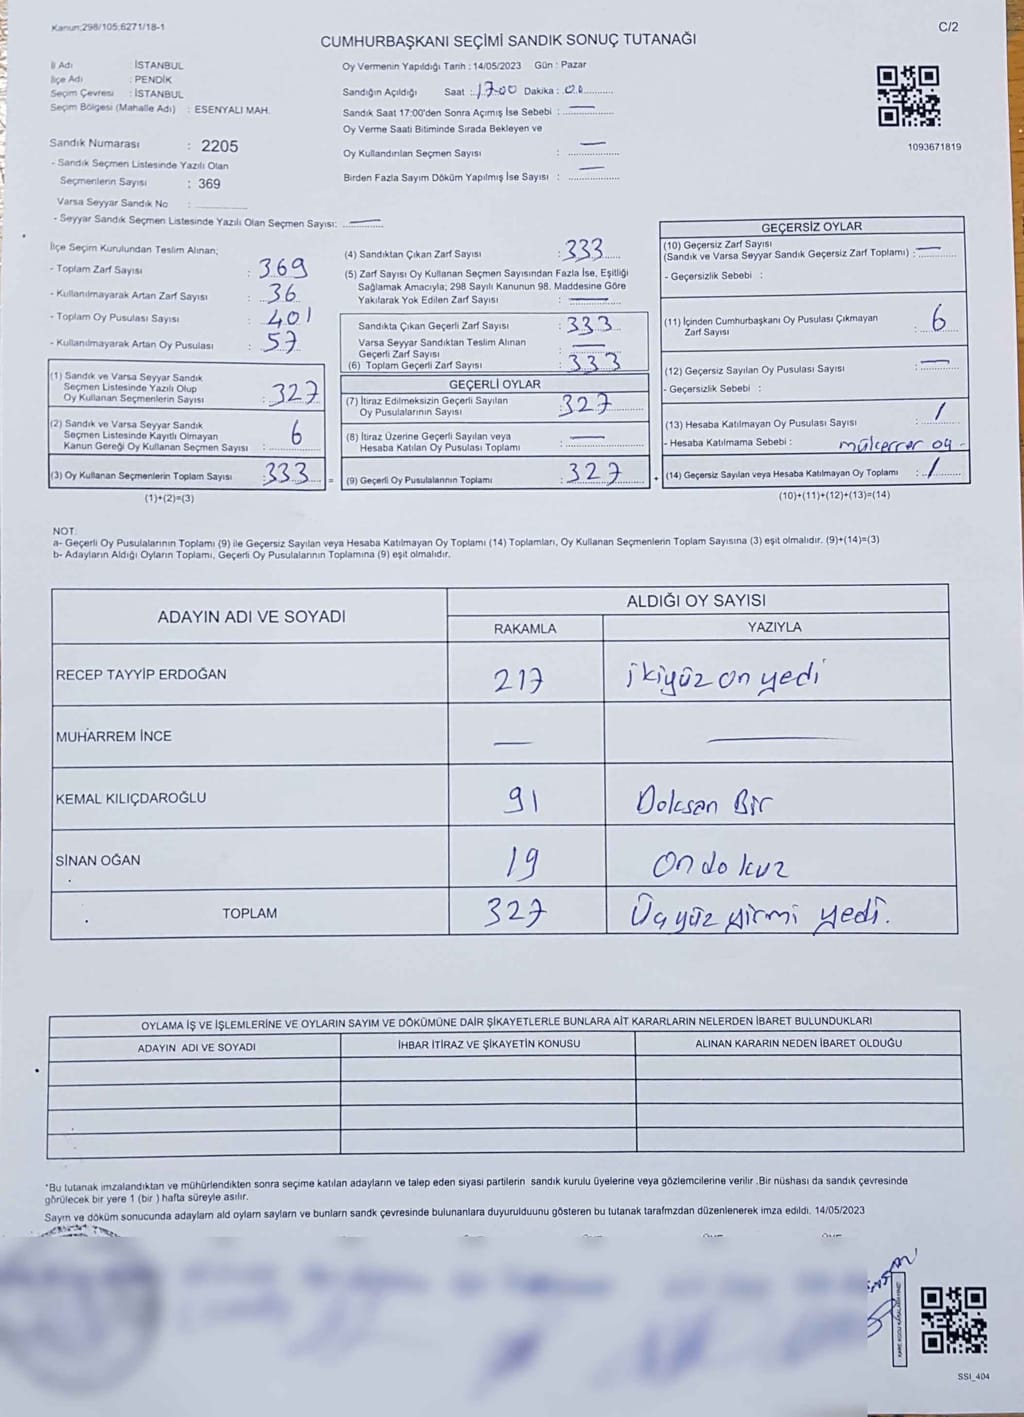 Kanun:298/105;6271/18-1
C/2
CUMHURBAŞKANI SEÇİMİ SANDIK SONUÇ TUTANAĞI
İl Adı : İSTANBUL
İlçe Adı : PENDİK
Seçim Çevresi : İSTANBUL
Seçim Bölgesi (Mahalle Adı) : ESENYALI MAH.
Sandık Numarası : 2205
- Sandık Seçmen Listesinde Yazılı Olan
Seçmenlerin Sayısı : 369
Varsa Seyyar Sandık No :
- Seyyar Sandık Seçmen Listesinde Yazılı Olan Seçmen Sayısı: —
Oy Vermenin Yapıldığı Tarih : 14/05/2023 Gün : Pazar
Sandığın Açıldığı Saat : 17:00 Dakika : 00
Sandık Saat 17:00'den Sonra Açımış İse Sebebi : —
Oy Verme Saati Bitiminde Sırada Bekleyen ve
Oy Kullandırılan Seçmen Sayısı : —
Birden Fazla Sayım Döküm Yapılmış İse Sayısı : —
1093671819
İlçe Seçim Kurulundan Teslim Alınan;
- Toplam Zarf Sayısı : 369
- Kullanılmayarak Artan Zarf Sayısı : 36
- Toplam Oy Pusulası Sayısı : 401
- Kullanılmayarak Artan Oy Pusulası : 57
(1) Sandık ve Varsa Seyyar Sandık
Seçmen Listesinde Yazılı Olup
Oy Kullanan Seçmenlerin Sayısı : 327
(2) Sandık ve Varsa Seyyar Sandık
Seçmen Listesinde Kayıtlı Olmayan
Kanun Gereği Oy Kullanan Seçmen Sayısı : 6
(3) Oy Kullanan Seçmenlerin Toplam Sayısı : 333 =
(1)+(2)=(3)
(4) Sandıktan Çıkan Zarf Sayısı : 333
(5) Zarf Sayısı Oy Kullanan Seçmen Sayısından Fazla İse, Eşitliği
Sağlamak Amacıyla; 298 Sayılı Kanunun 98. Maddesine Göre
Yakılarak Yok Edilen Zarf Sayısı : —
Sandıkta Çıkan Geçerli Zarf Sayısı : 333
Varsa Seyyar Sandıktan Teslim Alınan
Geçerli Zarf Sayısı : —
(6) Toplam Geçerli Zarf Sayısı : 333
GEÇERLİ OYLAR
(7) İtiraz Edilmeksizin Geçerli Sayılan
Oy Pusulalarının Sayısı : 327
(8) İtiraz Üzerine Geçerli Sayılan veya
Hesaba Katılan Oy Pusulası Toplamı : —
(9) Geçerli Oy Pusulalarının Toplamı : 327 +
GEÇERSİZ OYLAR
(10) Geçersiz Zarf Sayısı
(Sandık ve Varsa Seyyar Sandık Geçersiz Zarf Toplamı) : —
- Geçersizlik Sebebi :
(11) İçinden Cumhurbaşkanı Oy Pusulası Çıkmayan
Zarf Sayısı : 6
(12) Geçersiz Sayılan Oy Pusulası Sayısı : —
- Geçersizlik Sebebi :
(13) Hesaba Katılmayan Oy Pusulası Sayısı : 1
- Hesaba Katılmama Sebebi : mükerrer oy -
(14) Geçersiz Sayılan veya Hesaba Katılmayan Oy Toplamı : 1
(10)+(11)+(12)+(13)=(14)
NOT:
a- Geçerli Oy Pusulalarının Toplamı (9) ile Geçersiz Sayılan veya Hesaba Katılmayan Oy Toplamı (14) Toplamları, Oy Kullanan Seçmenlerin Toplam Sayısına (3) eşit olmalıdır. (9)+(14)=(3)
b- Adayların Aldığı Oyların Toplamı, Geçerli Oy Pusulalarının Toplamına (9) eşit olmalıdır.
ADAYIN ADI VE SOYADI ALDIĞI OY SAYISI
RAKAMLA YAZIYLA
RECEP TAYYİP ERDOĞAN 217 ikiyüz on yedi
MUHARREM İNCE — —
KEMAL KILIÇDAROĞLU 91 Doksan Bir
SİNAN OĞAN 19 On dokuz
TOPLAM 327 Üçyüz yirmi yedi.
OYLAMA İŞ VE İŞLEMLERİNE VE OYLARIN SAYIM VE DÖKÜMÜNE DAİR ŞİKAYETLERLE BUNLARA AİT KARARLARIN NELERDEN İBARET BULUNDUKLARI
ADAYIN ADI VE SOYADI İHBAR İTİRAZ VE ŞİKAYETİN KONUSU ALINAN KARARIN NEDEN İBARET OLDUĞU
*Bu tutanak imzalandıktan ve mühürlendikten sonra seçime katılan adayların ve talep eden siyasi partilerin sandık kurulu üyelerine veya gözlemcilerine verilir .Bir nüshası da sandık çevresinde
görülecek bir yere 1 (bir ) hafta süreyle asılır.
Sayın ve döküm sonucunda adaylarn ald oylarn saylarn ve bunlarn sandk çevresinde bulunanlara duyurulduunu gösteren bu tutanak tarafmzdan düzenlenerek imza edildi. 14/05/2023
SSI_404